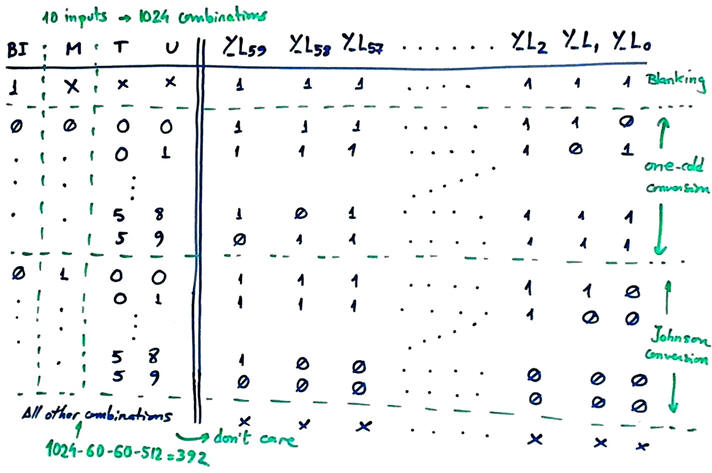 10 inputs → 1024 combinations
BI M T U Y_L59 Y_L58 Y_L57 ...... Y_L2 Y_L1 Y_L0
1 X X X 1 1 1 .... 1 1 1 Blanking
0 0 0 0 1 1 1 .... 1 1 0
. . 0 1 1 1 1 .... 1 0 1
one-cold
conversion
. . 5 8 1 0 1 .... 1 1 1
. . 5 9 0 1 1 .... 1 1 1
0 1 0 0 1 1 1 .... 1 1 0
. . 0 1 1 1 1 .... 1 0 0
Johnson
conversion
. . 5 8 1 0 0 .... 0 0 0
. . 5 9 0 0 0 .... 0 0 0
All other combinations x x x ..... x x x
1024-60-60-512=392
don't care